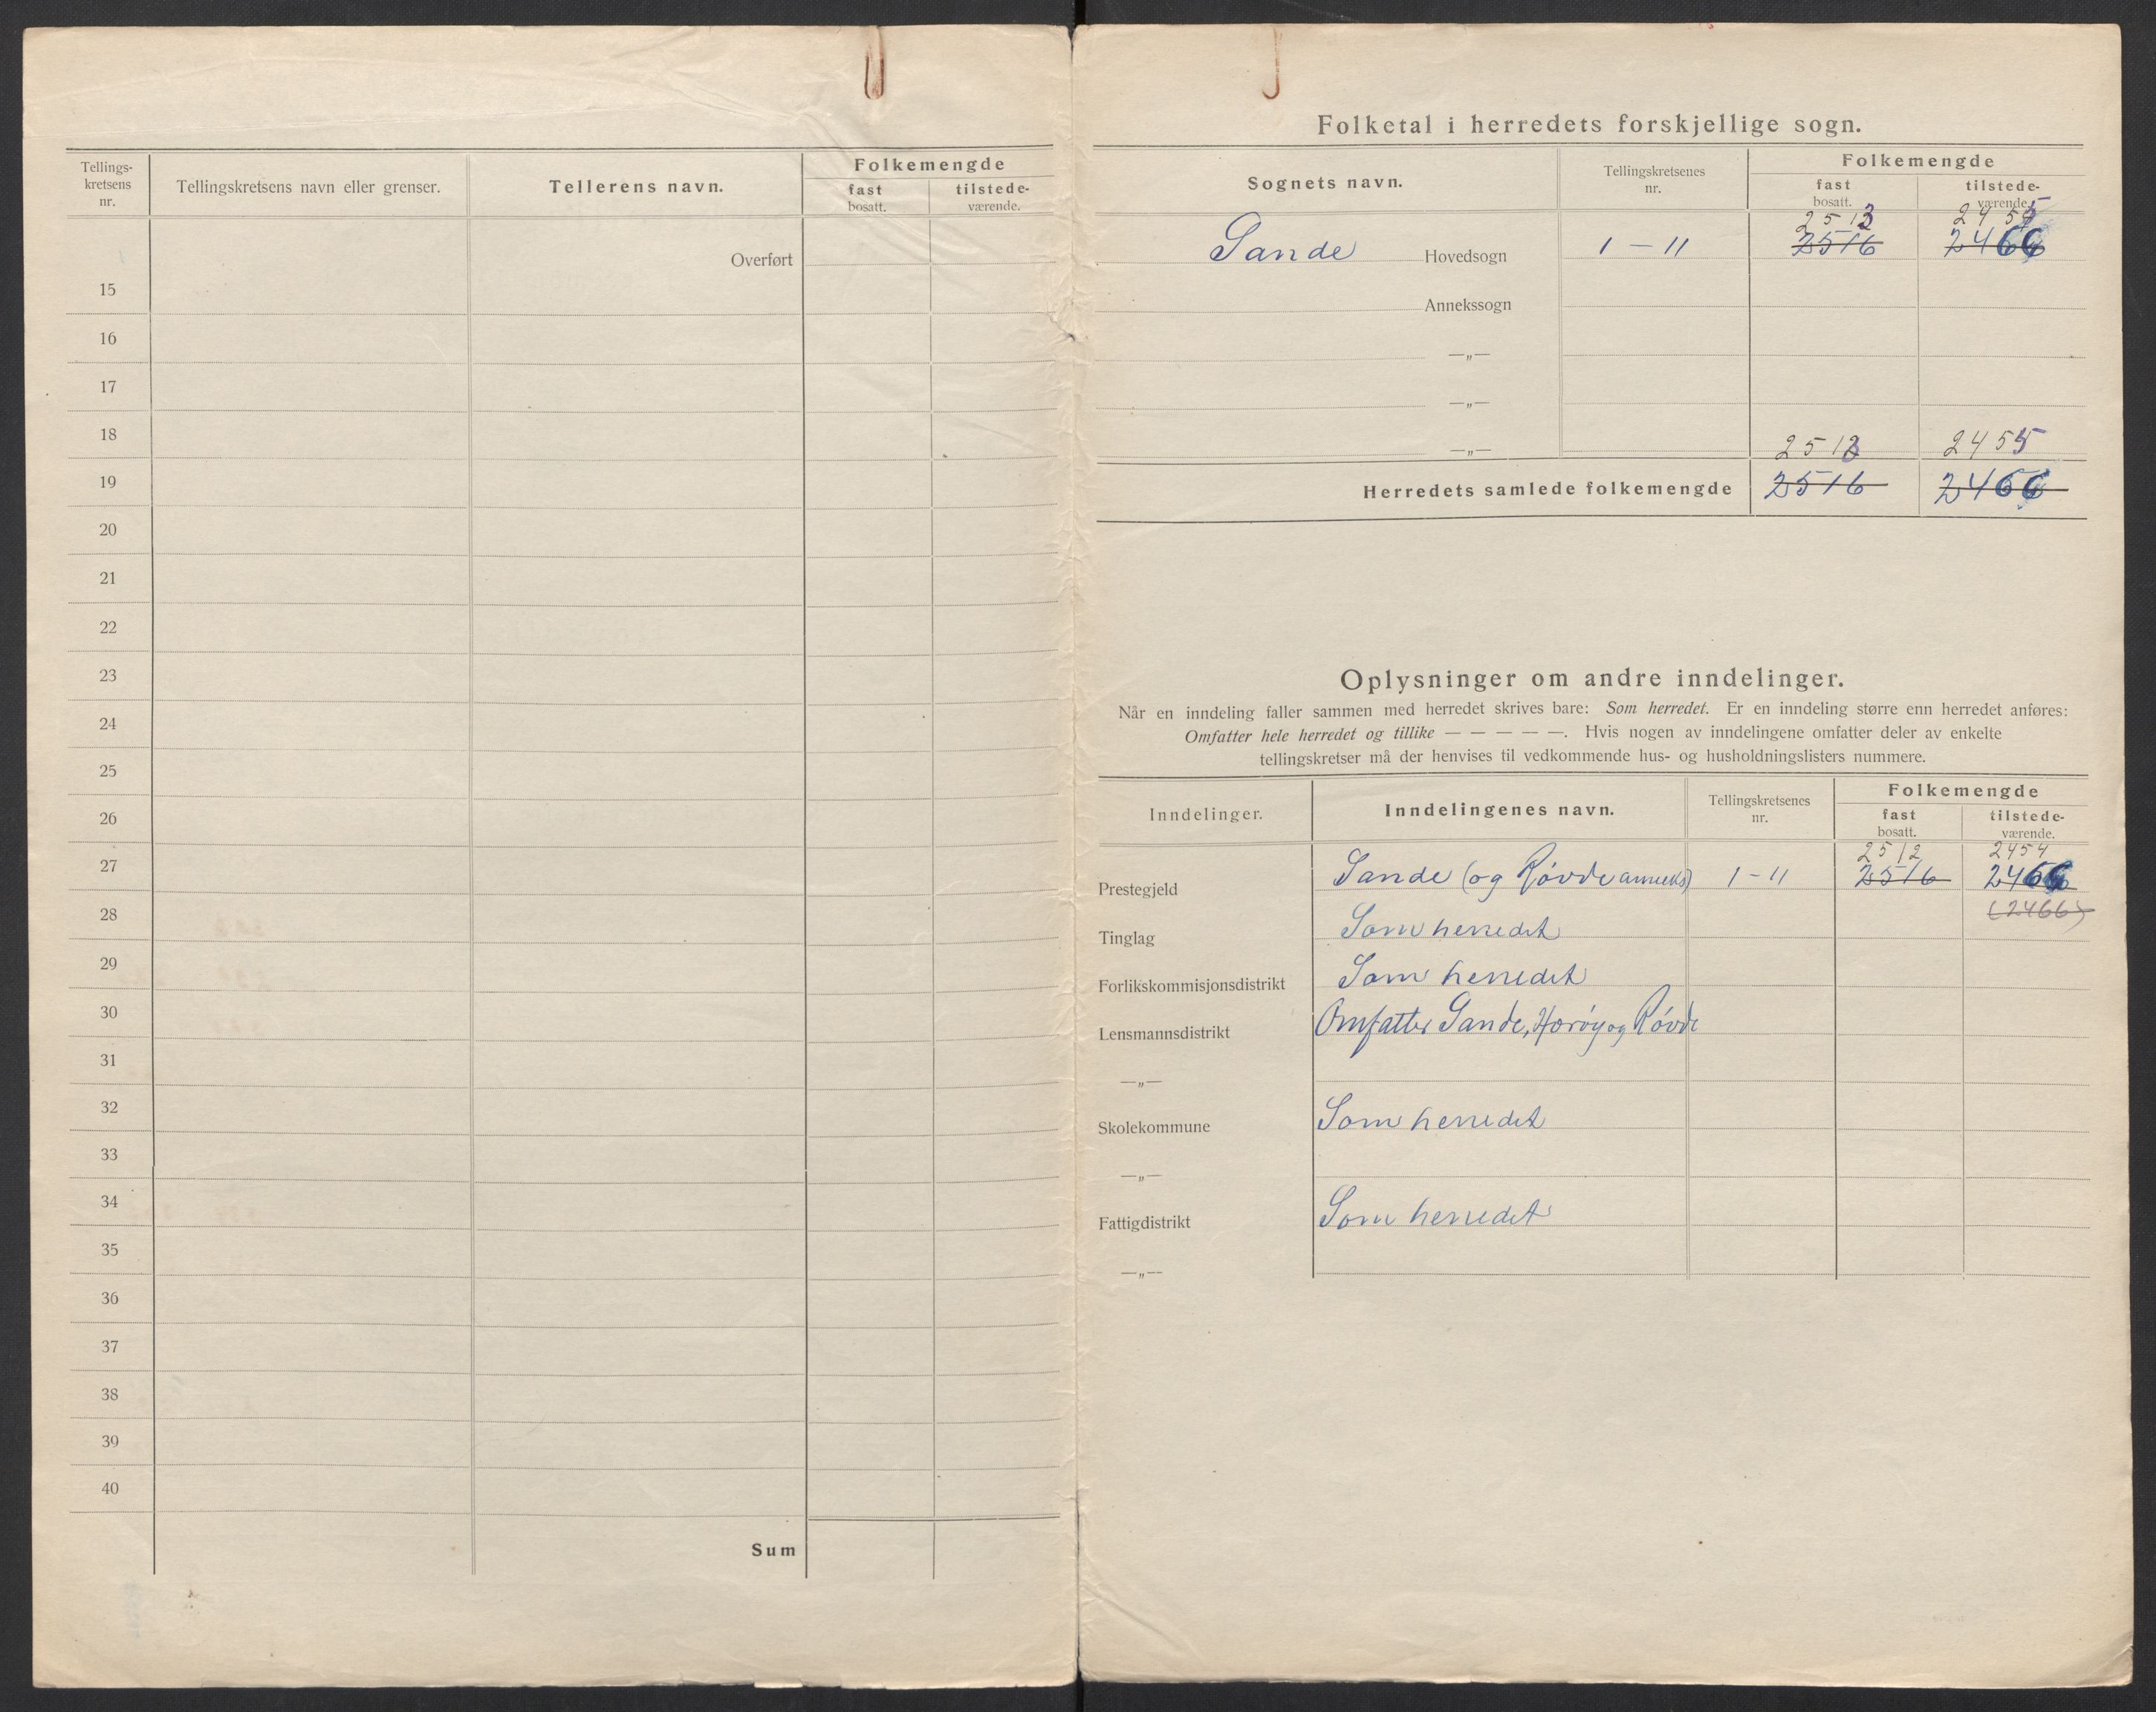 Tellings-
kretsens
nr.
Tellingskretsens navn eller grenser.
Tellerens navn.
Folkemengde
fast
bosatt.
tilstede-
værende.
Overført
15
16
17
18
19
20
21
22
23
24
25
26
27
28
29
30
31
32
33
34
35
36
37
38
39
40
Sum
Folketal i herredets forskjellige sogn.
Sognets navn.
Tellingskretsenes
nr.
Folkemengde
fast
bosatt.
tilstede-
værende.
2513 2455
Sande Hovedsogn 1 – 11 2516 2466
Annekssogn
—„—
—„—
—„—
2513 2455
Herredets samlede folkemengde 2516 2466
Oplysninger om andre inndelinger.
Når en inndeling faller sammen med herredet skrives bare: Som herredet. Er en inndeling større enn herredet anføres:
Omfatter hele herredet og tillike — — — — —. Hvis nogen av inndelingene omfatter deler av enkelte
tellingskretser må der henvises til vedkommende hus- og husholdningslisters nummere.
Inndelinger.
Inndelingenes navn.
Tellingskretsenes
nr.
Folkemengde
fast
bosatt.
tilstede-
værende.
2512 2454
Prestegjeld Sande (og Røvde anneks) 1 – 11 2516 2466
(2466)
Tinglag Som herredet
Forlikskommisjonsdistrikt Som herredet
Lensmannsdistrikt Omfatter Sande, Herøy og Røvde
—„—
Skolekommune Som herredet
—„—
Fattigdistrikt Som herredet
—„—